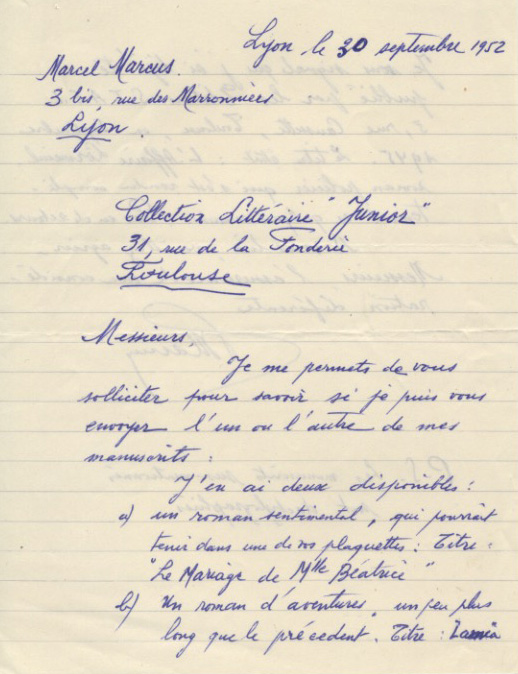 Lyon, le 30 septembre 1952
Marcel Marcus.
3 bis, rue des Marronniers
Lyon.
Collection Littéraire "Junior"
31, rue de la Fonderie
Toulouse
Messieurs,
Je me permets de vous
solliciter pour savoir si je puis vous
envoyer l'un ou l'autre de mes
manuscrits :
J'en ai deux disponibles :
a) un roman sentimental, qui pourrait
tenir dans une de vos plaquettes : Titre :
"Le Mariage de Mlle Béatrice"
b) Un roman d'aventures, un peu plus
long que le précédent. Titre : Zamia